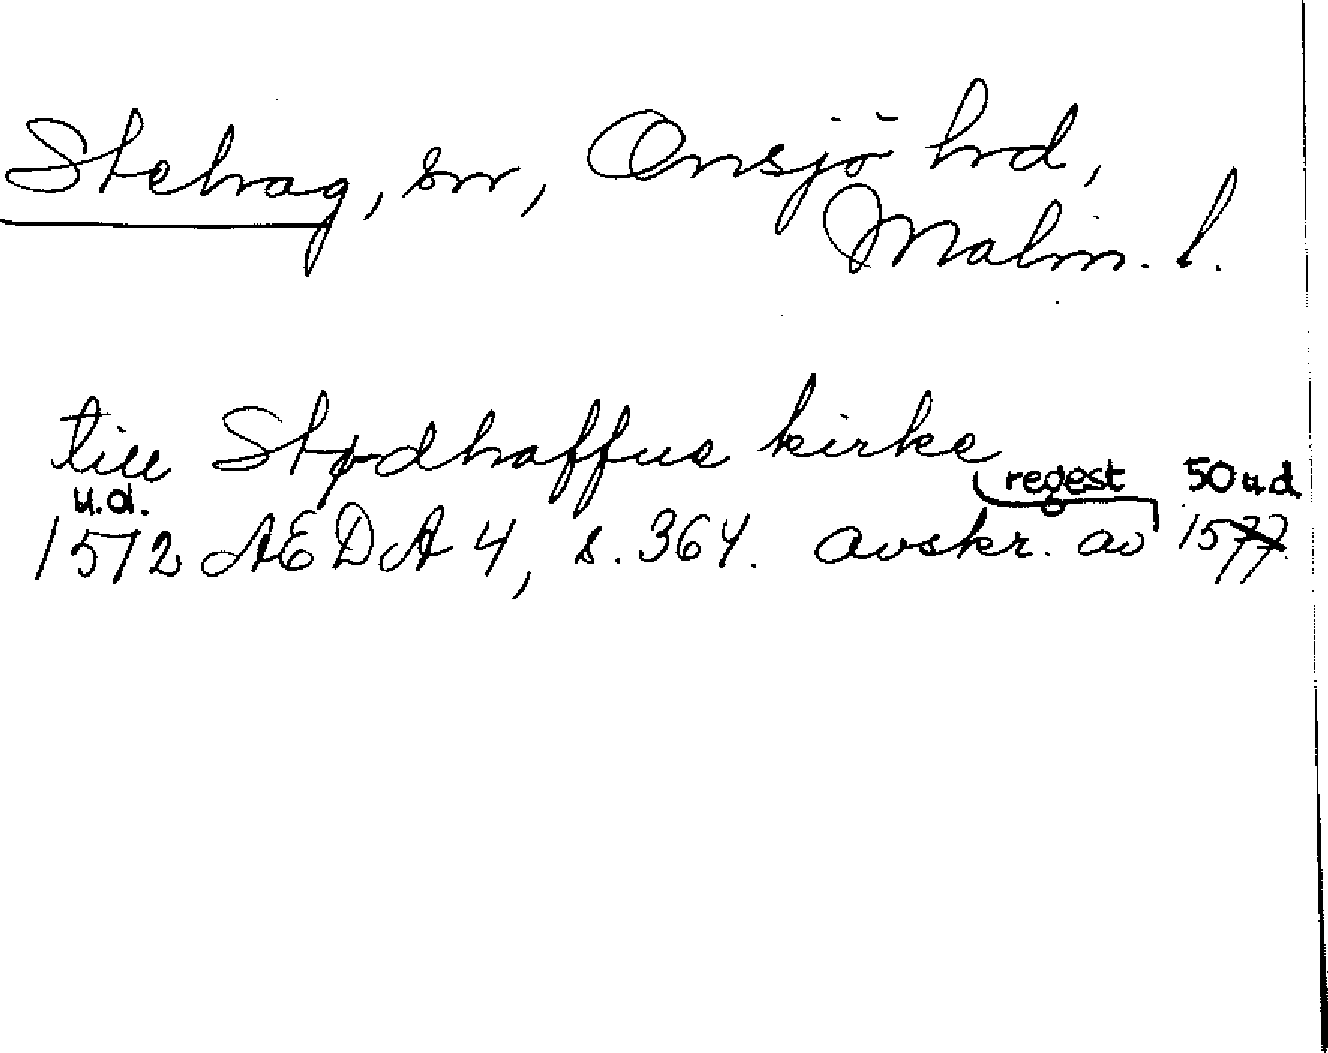 Stehag, sn, Onsjö hd,
Malm. l.
till Stødhaffue kirke
u.d. regest 50 u.d.
1572 AEDA 4, s. 364. avskr. av 1577